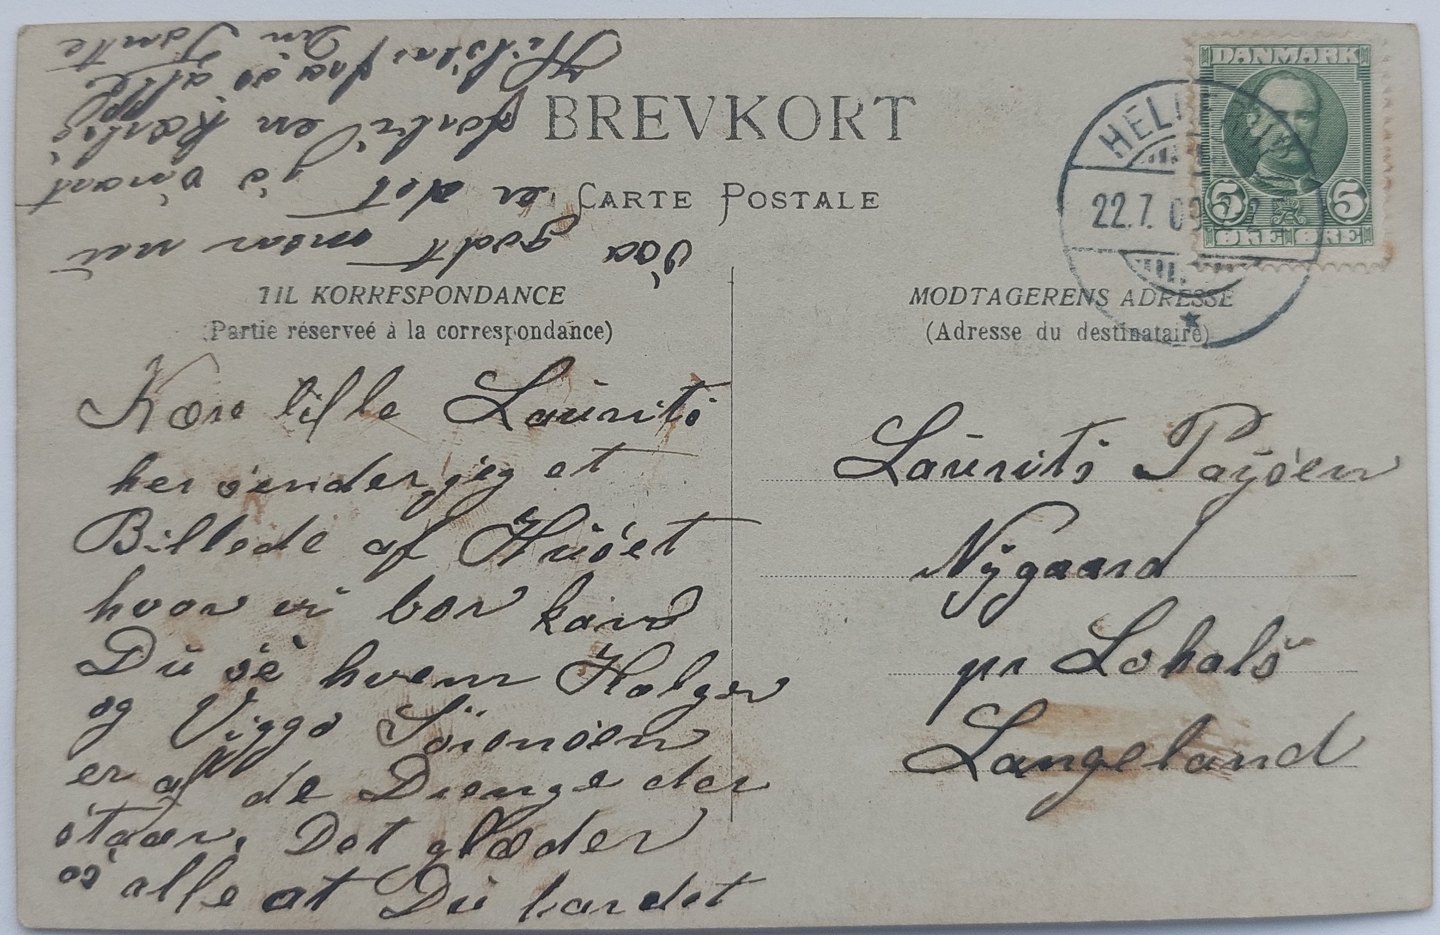 BREVKORT
CARTE POSTALE
DANMARK
5 5
ØRE ØRE
22.7.09
TIL KORRESPONDANCE
(Partie réserveé à la correspondance)
MODTAGERENS ADRESSE
(Adresse du destinataire)
Kære lille Laurits
her sender jeg et
Billede af Huset
hvor vi bor kand
Du se hvem Holger
og Viggo Sørensen
er af de Drenge der
staar. Det glæder
os alle at Du har det
saa godt men nu
er det jo snart
forbi en Kærlig
Hilsen fra os alle
Din Tante
Laurits Paysen
Nygaard
pr Lohals
Langeland